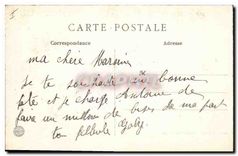 CARTE POSTALE
Correspondance Adresse
ma chère Marraine
je te souhaite une bonne
fête et je charge Antoine de
faire un million de bises de ma part
ta filleule Gaby